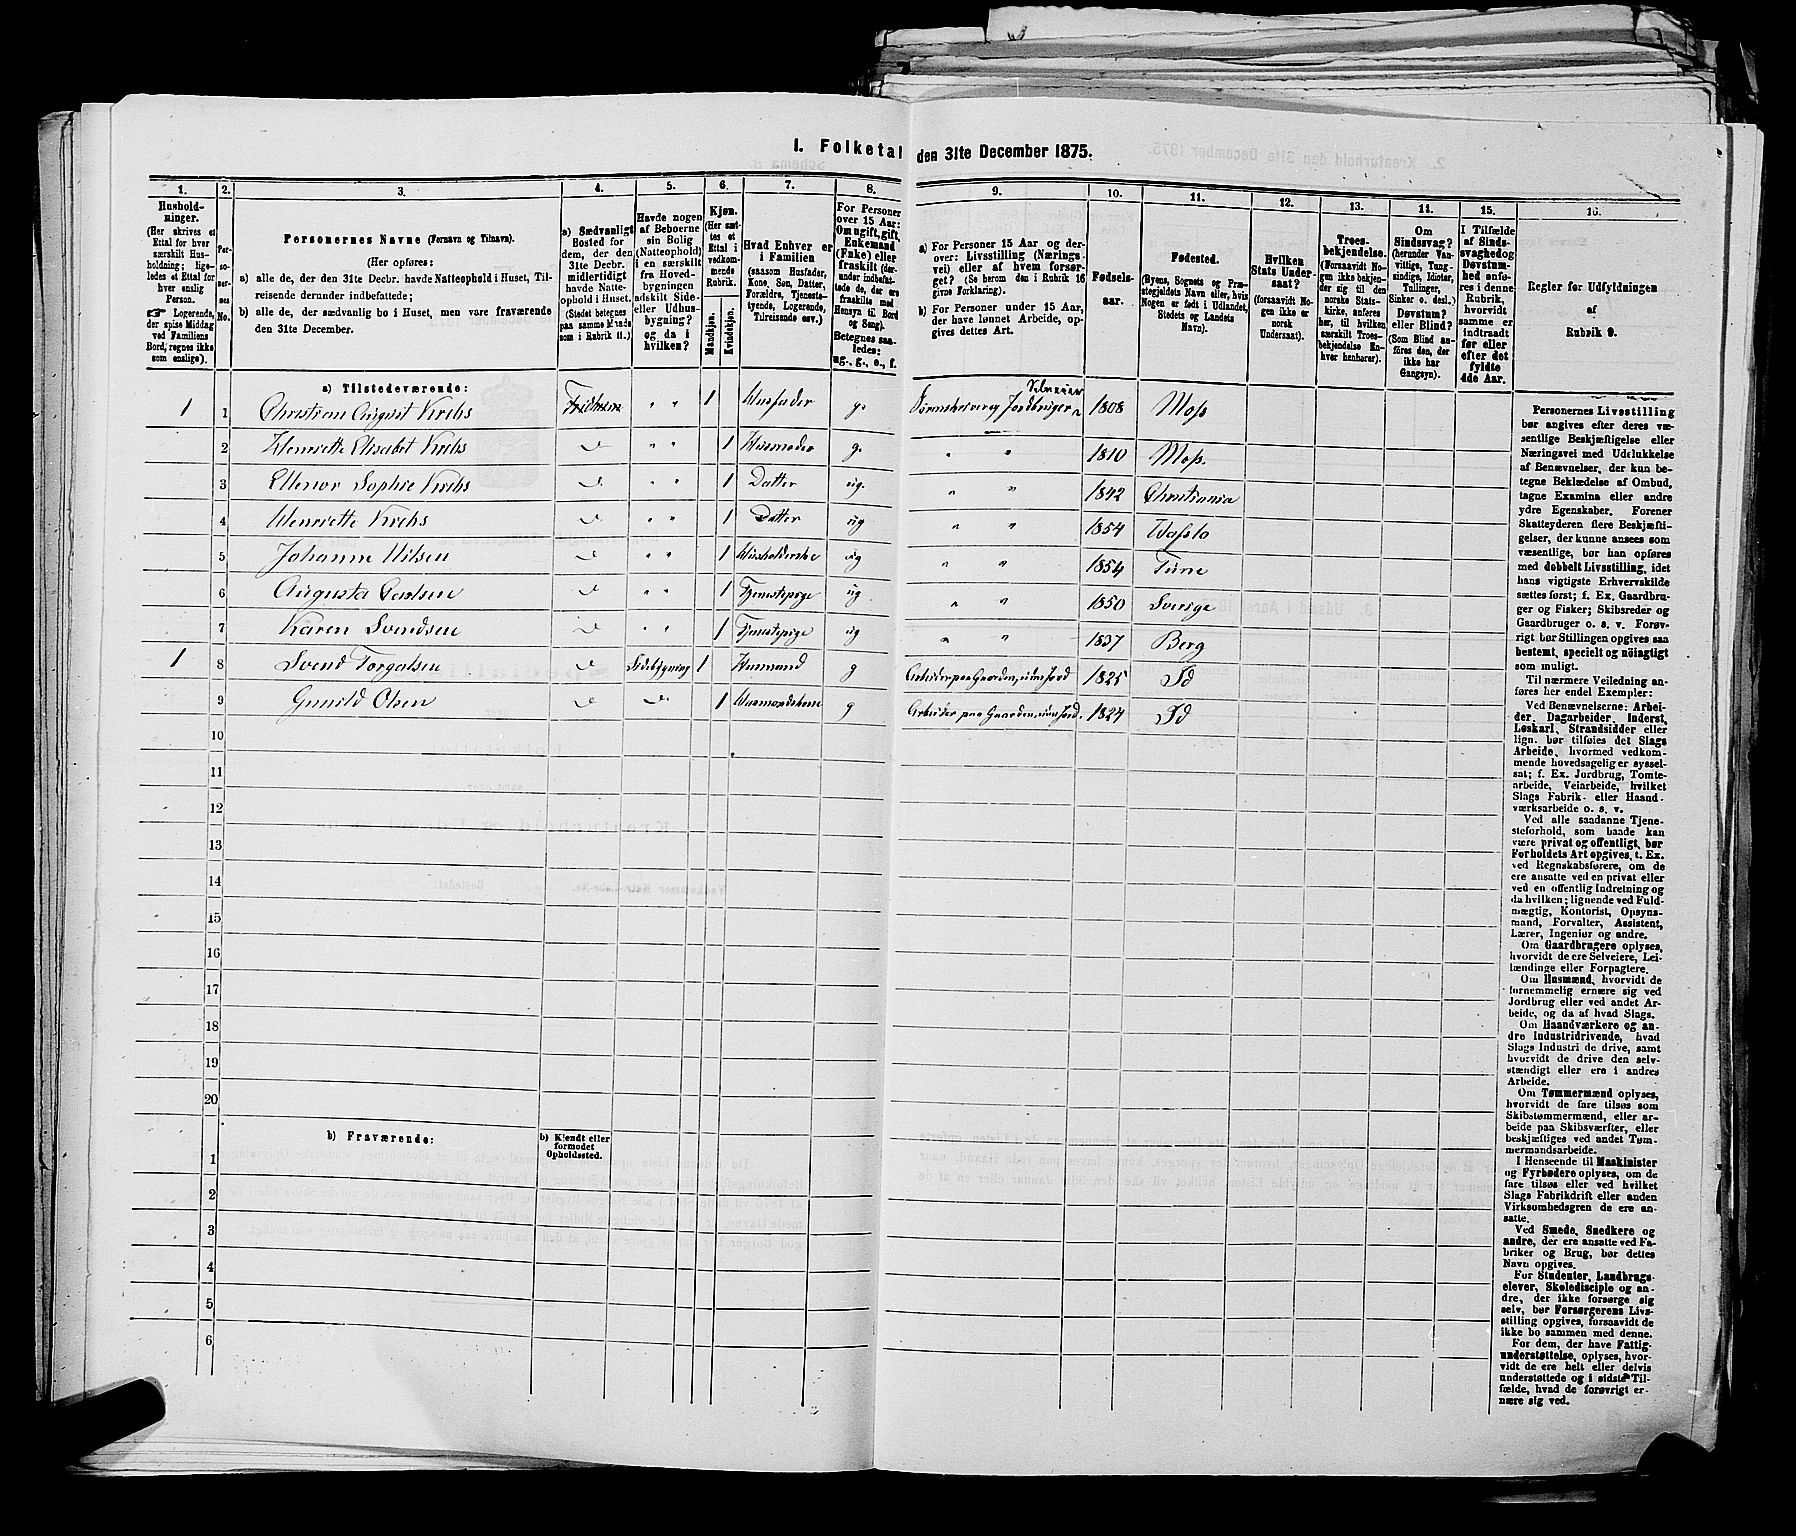 I. Folketal den 31te December 1875.
1. 2. 3. 4. 5. 6. 7. 8. 9. 10. 11. 12. 13. 14. 15. 16.
Husholdninger.
(Her skrives et Ettal for hver særskilt Husholdning; ligeledes et Ettal for hver enslig Person.
☞ Logerende, der spise Middag ved Familiens Bord, regnes ikke som enslige).
Personernes No.
Personernes Navne (Fornavn og Tilnavn).
(Her opføres:
a) alle de, der den 31te Decbr. havde Natteophold i Huset, Tilreisende derunder indbefattede;
b) alle de, der sædvanlig bo i Huset, men vare fraværende den 31te December.
a) Sædvanligt Bosted for dem, der den 31te Decbr. midlertidigt havde Natteophold i Huset. (Stedet betegnes paa samme Maade som i Rubrik 11.)
Havde nogen af Beboerne sin Bolig (Natteophold) i en særskilt fra Hovedbygningen adskilt Side- eller Udhusbygning? og da i hvilken?
Kjøn. (Her sættes et Ettal i vedkommende Rubrik.
Mandkjøn. Kvindekjøn.
Hvad Enhver er i Familien
(saasom Husfader, Kone, Søn, Datter, Forældre, Tjenestetyende, Logerende, Tilreisende osv.)
For Personer over 15 Aar: Om ugift, gift, Enkemand (Enke) eller fraskilt (derunder indbefattede de, der ere fraskilte med Hensyn til Bord og Seng). Betegnes saaledes: ug., g., e., f.
a) For Personer 15 Aar og derover: Livsstilling (Næringsvei) eller af hvem forsørget? (Se herom den i Rubrik 16 givne Forklaring).
b) For Personer under 15 Aar, der have lønnet Arbeide, opgives dettes Art.
Fødselsaar.
Fødested.
(Byens, Sognets og Præstegjeldets Navn eller, hvis Nogen er født i Udlandet, Stedets og Landets Navn).
Hvilken Stats Undersaat?
(forsaavidt Nogen ikke er norsk Undersaat).
Troesbekjendelse.
(Forsaavidt Nogen ikke bekjender sig til den norske Statskirke, anføres her, til hvilken særskilt Troesbekjendelse Enhver henhører).
Om Sindssvag? (herunder Vanvittige, Tungsindige, Idioter, Tullinger, Sinker o. desl.) Døvstum? eller Blind? (Som Blind anføres den, der ikke har Gangsyn).
I Tilfælde af Sindssvaghed og Døvstumhed anføres i denne Rubrik, hvorvidt samme er indtraadt før eller efter det fyldte 4de Aar.
Regler for Udfyldningen af Rubrik 9.
a) Tilstedeværende:
1 1 Christian August Krebs Fridheim " " 1 Husfader g. Selveier Jordbruger 1808 Moss
2 Henriette Elisabet Krebs " " 1 Husmoder g. " " 1810 Moss.
3 Ellenor Sophie Krebs " " 1 Datter ug. " " 1842 Christiania
4 Henriette Krebs " " 1 Datter ug " " 1854 Hafslo
5 Johanne Nilsen " " 1 Husholderske ug " " 1854 Tune
6 Augusta Carlsen " " 1 Tjenestepige ug " " 1850 Sverige
7 Karen Svendsen " " 1 Tjenestepige ug " " 1837 Berg
1 8 Svend Torgalsen Sidebygning 1 Husmand g Arbeider paa Gaarden, uden Jord 1825 Id
9 Gunild Olsen 1 Husmandskone g Arbeider paa Gaarden, uden Jord. 1824 Id
10
11
12
13
14
15
16
17
18
19
20
b) Fraværende: b) Kjendt eller formodet Opholdssted.
1
2
3
4
5
6
Personernes Livsstilling
bør angives efter deres væ-
sentlige Beskjæftigelse eller
Næringsvei med Udelukkelse
af Benævnelser, der kun be-
tegne Beklædelse af Ombud,
tagne Examina eller andre
ydre Egenskaber. Forener
Skatteyderen flere Beskjæfti-
gelser, der kunne ansees som
væsentlige, bør han opføres
med dobbelt Livsstilling, idet
hans vigtigste Erhvervskilde
sættes først; f. Ex. Gaardbru-
ger og Fisker; Skibsreder og
Gaardbruger o. s. v. Forøv-
rigt bør Stillingen opgives saa
bestemt, specielt og nöiagtigt
som muligt.
Til nærmere Veiledning an-
føres her endel Exempler:
Ved Benævnelserne: Arbei-
der, Dagarbeider, Inderst,
Løskarl, Strandsidder eller
lign. bør tilføies det Slags
Arbeide, hvormed vedkom-
mende hovedsagelig er syssel-
sat; f. Ex. Jordbrug, Tomte-
arbeide, Veiarbeide, hvilket
Slags Fabrik- eller Haand-
værksarbeide o. s. v.
Ved alle saadanne Tjene-
steforhold, som baade kan
være privat og offentligt, bør
Forholdets Art opgives, t. Ex.
ved Regnskabsførere, om de
ere ansatte ved en privat eller
ved en offentlig Indretning og
da hvilken; lignende ved Fuld-
mægtig, Kontorist, Opsyns-
mand, Forvalter, Assistent,
Lærer, Ingeniør og andre.
Om Gaardbrugere oplyses,
hvorvidt de ere Selveiere, Lei-
lændinge eller Forpagtere.
Om Husmænd, hvorvidt de
fornemmelig ernære sig ved
Jordbrug eller ved andet Ar-
beide, og da af hvad Slags.
Om Haandværkere og an-
dre Industridrivende, hvad
Slags Industri de drive, samt
hvorvidt de drive den selv-
stændigt eller ere i andres
Arbeide.
Om Tømmermænd oplyses,
hvorvidt de fare tilsøs som
Skibstømmermænd, eller ar-
beide paa Skibsværfter, eller
beskjæftiges ved andet Tøm-
mermandsarbeide.
I Henseende til Maskinister
og Fyrbødere oplyses, om de
fare tilsøs eller ved hvilket
Slags Fabrikdrift eller anden
Virksomhedsgren de ere an-
satte.
Ved Smede, Snedkere og
andre, der ere ansatte ved Fa-
briker og Brug, bør dettes
Navn opgives.
For Studenter, Landbrugs-
elever, Skoledisciple og an-
dre, der ikke forsørge sig
selv, bør Forsørgerens Livs-
stilling opgives, forsaavidt de
ikke bo sammen med denne.
For dem, der have Fattig-
understøttelse, oplyses, hvor-
vidt de ere helt eller delvis
understøttede og i sidste Til-
fælde, hvad de forøvrigt er-
nære sig ved.